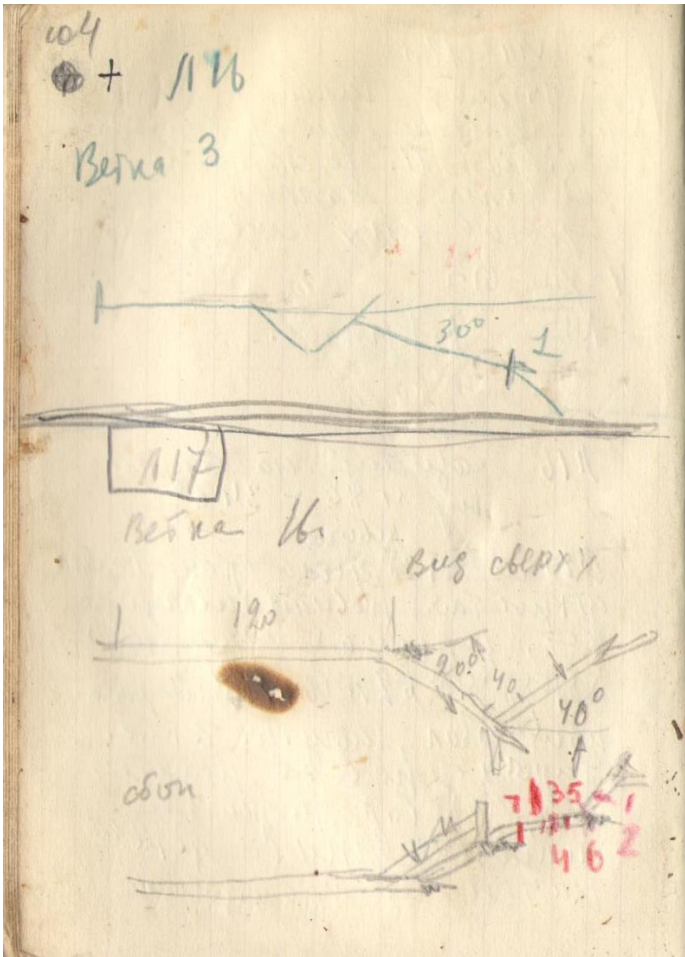 104
+ Л16
Ветка 3
30°
1
Л17
Ветка 16
Вид сверху
120
20°
40
40°
сбоку
7 35 - 1
2
4 6